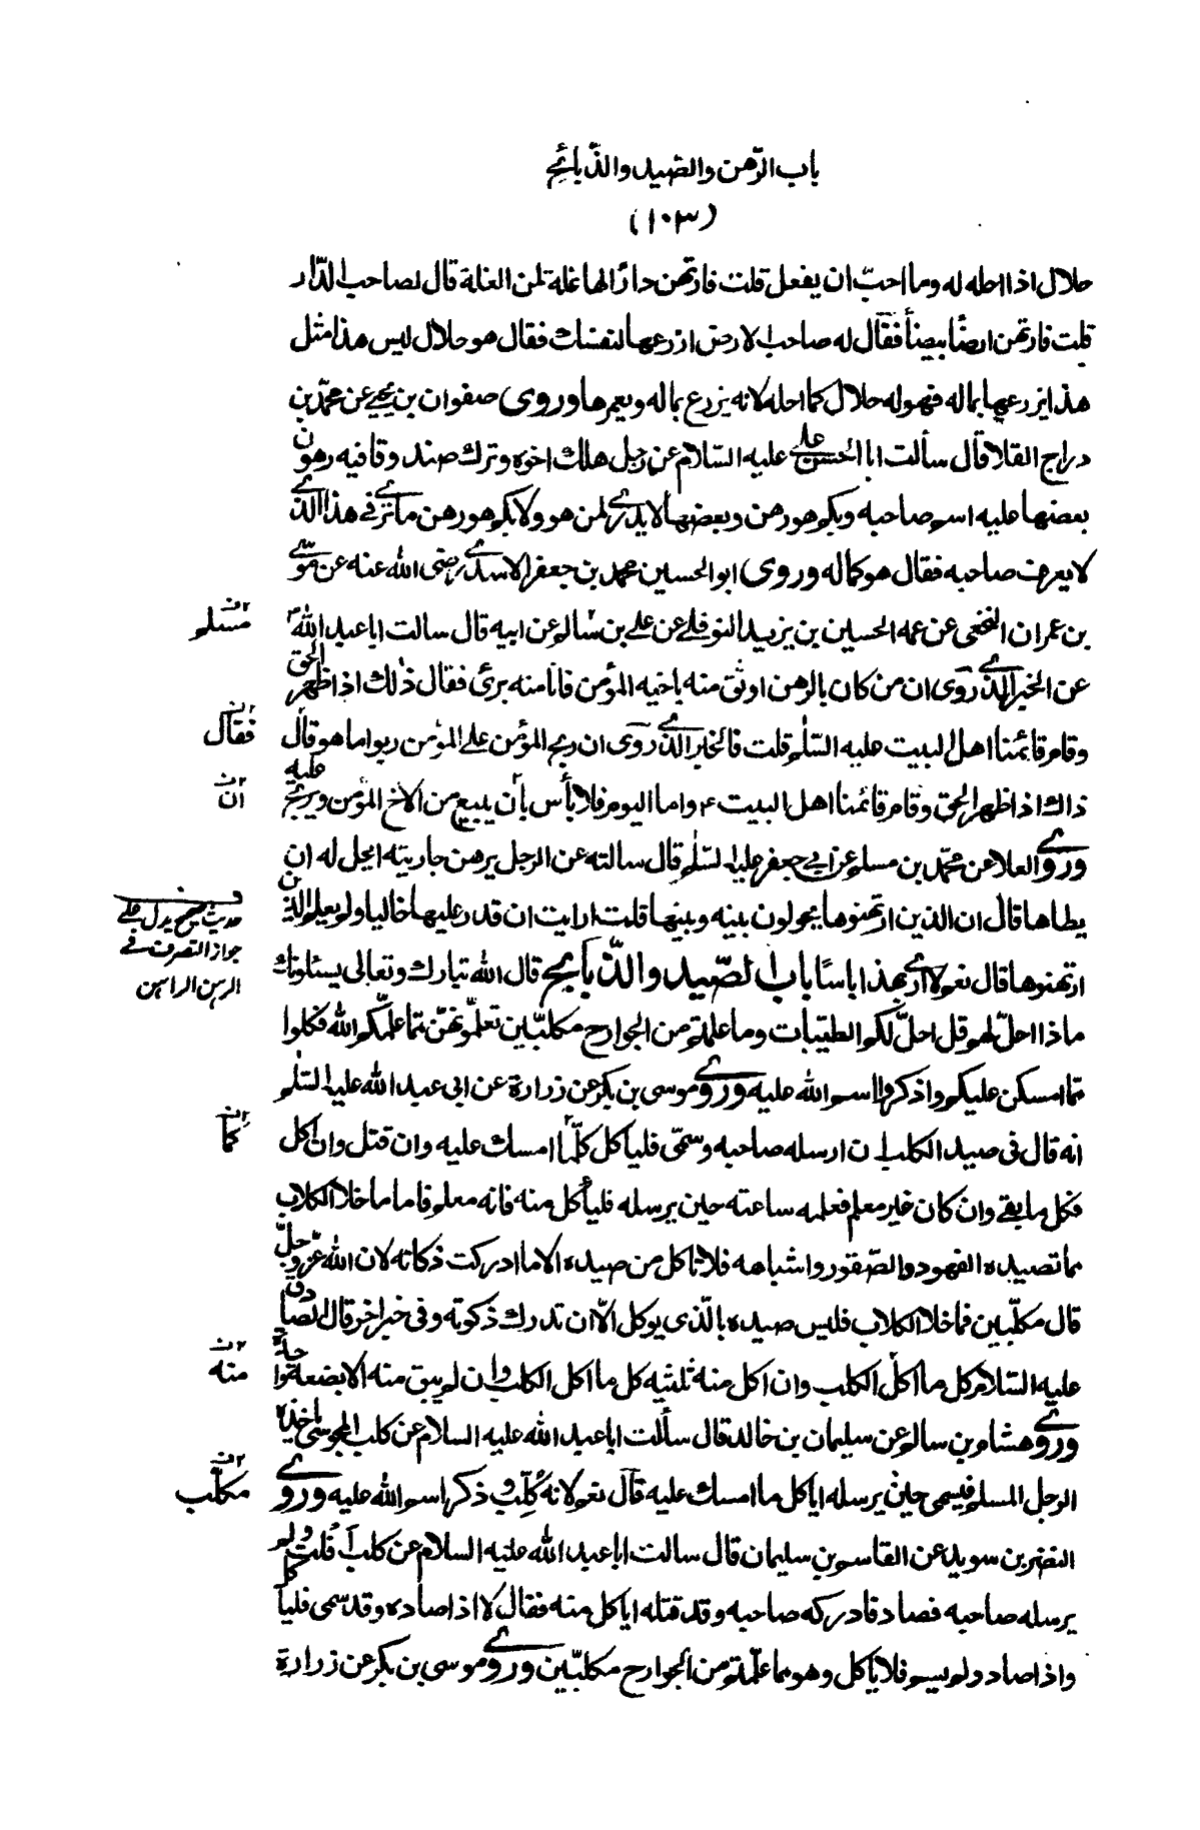 باب الرّهن والصّيد والذّبائح
(١٠٣)
حلال اذا احله له وما احبّ ان يفعل قلت فارتهن دارًا لها غلة لمن الغلة قال لصاحب الدّار
قلت فارتهن ارضًا بيضأً فقال له صاحب الارض ازرعها لنفسك فقال هو حلال ليس هذا مثل
هذا يزرعها بماله فهو له حلال كما احله لانه يزرع بماله ويعمرها وروى صفوان بن يحيى عن محمّد بن
دراج القلا قال سألت ابا الحسن عليه السّلام عن رجل هلك اخوه وترك صندوقا فيه رهون
بعضها عليه اسم صاحبه وبكم هو رهن وبعضها لا يدرى لمن هو ولا بكم هو رهن ما ترى فى هذا الذى
لا يعرف صاحبه فقال هو كماله وروى ابو الحسين محمد بن جعفر الاسدى رضى الله عنه عن موسى
بن عمران النخعى عن عمه الحسين بن يزيد النوفلى عن على بن سالم عن ابيه قال سالت ابا عبد الله
مسلم
عن الخبر الذى روى ان من كان بالرهن اوثق منه باخيه المؤمن فانا منه برئ فقال ذلك اذا ظهر الحق
وقام قائمنا اهل البيت عليه السّلم قلت فالخبر الذى روى ان ربح المؤمن على المؤمن ربوا ما هو قال
فقال
ذاك اذا ظهر الحق وقام قائمنا اهل البيت ع واما اليوم فلا بأس بأن يبيع من الاخ المؤمن ويربح عليه
ان
وروى العلا عن محمّد بن مسلم عن ابى جعفر عليه السّلم قال سالته عن الرجل يرهن جاريته ايحل له ان
يطاها قال ان الذين ارتهنوها يحولون بينه وبينها قلت ارايت ان قدر عليها خاليا ولم يعلم الذين
حديث صحيح يدل على
جواز التصرف فى
الرهن الراهن
ارتهنوها قال نعم لا ارى بهذا باسًا باب الصّيد والذّبائح قال الله تبارك وتعالى يسئلونك
ماذا احلّ لهم قل احلّ لكم الطيّبات وما علمتم من الجوارح مكلّبين تعلّمونهنّ ممّا علّمكم الله فكلوا
ممّا امسكن عليكم واذكروا اسم الله عليه وروى موسى بن بكر عن زرارة عن ابى عبد الله عليه السّلم
انه قال فى صيد الكلب ان ارسله صاحبه وسمّى فلياكل كلّما امسك عليه وان قتل وان اكل
كما
فكل ما بقى وان كان غير معلم فعلمه ساعته حين يرسله فليأكل منه فانه معلم فاما ما خلا الكلاب
مما تصيده الفهود والصّقور واشباهه فلا تاكل من صيده الا ما ادركت ذكاته لان الله عزّ وجلّ
قال مكلّبين فما خلا الكلاب فليس صيده بالّذى يوكل الّا ان تدرك ذكوته وفى خبر اخر قال الصّادق
عليه السّلام كل ما اكل الكلب وان اكل منه ثلثيه كل ما اكل الكلب وان لم يبق منه الا بضعة واحدة
منه
وروى هشام بن سالم عن سليمان بن خالد قال سألت ابا عبد الله عليه السلام عن كلب المجوسى ياخذه
الرجل المسلم فيسمى حين يرسله اياكل ما امسك عليه قال نعم لانه كلب وذكر اسم الله عليه وروى
مكلّب
النضر بن سويد عن القاسم بن سليمان قال سالت ابا عبد الله عليه السلام عن كلب افلت ولم
يرسله صاحبه فصاد فادركه صاحبه وقد قتله اياكل منه فقال لا اذا صاده وقد سمى فلياكل
واذا صاد ولم يسم فلا ياكل وهو مما علّمتم من الجوارح مكلّبين وروى موسى بن بكر عن زرارة